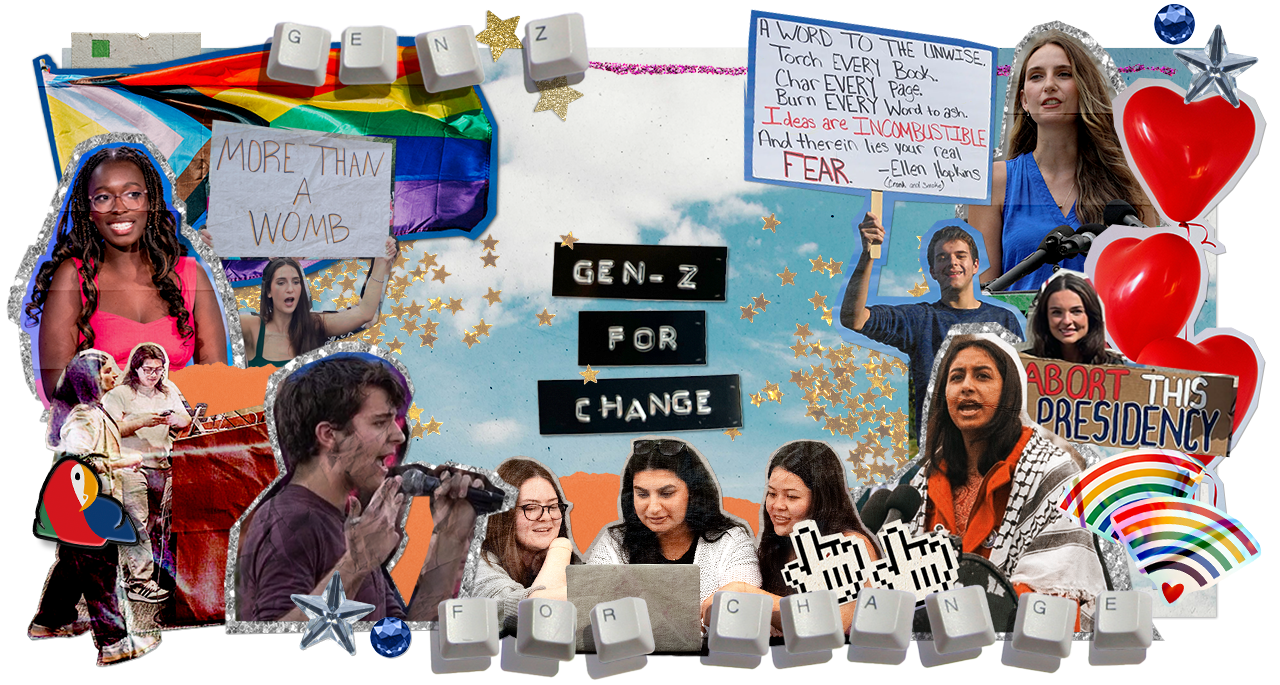 GEN Z
A WORD TO THE UNWISE.
Torch EVERY Book.
Char EVERY Page.
Burn EVERY Word to ash.
Ideas are INCOMBUSTIBLE
And therein lies your real
FEAR.
-Ellen Hopkins
(Crank and Smoke)
MORE THAN
A
WOMB
GEN-Z
FOR
CHANGE
ABORT THIS
PRESIDENCY
FOR CHANGE